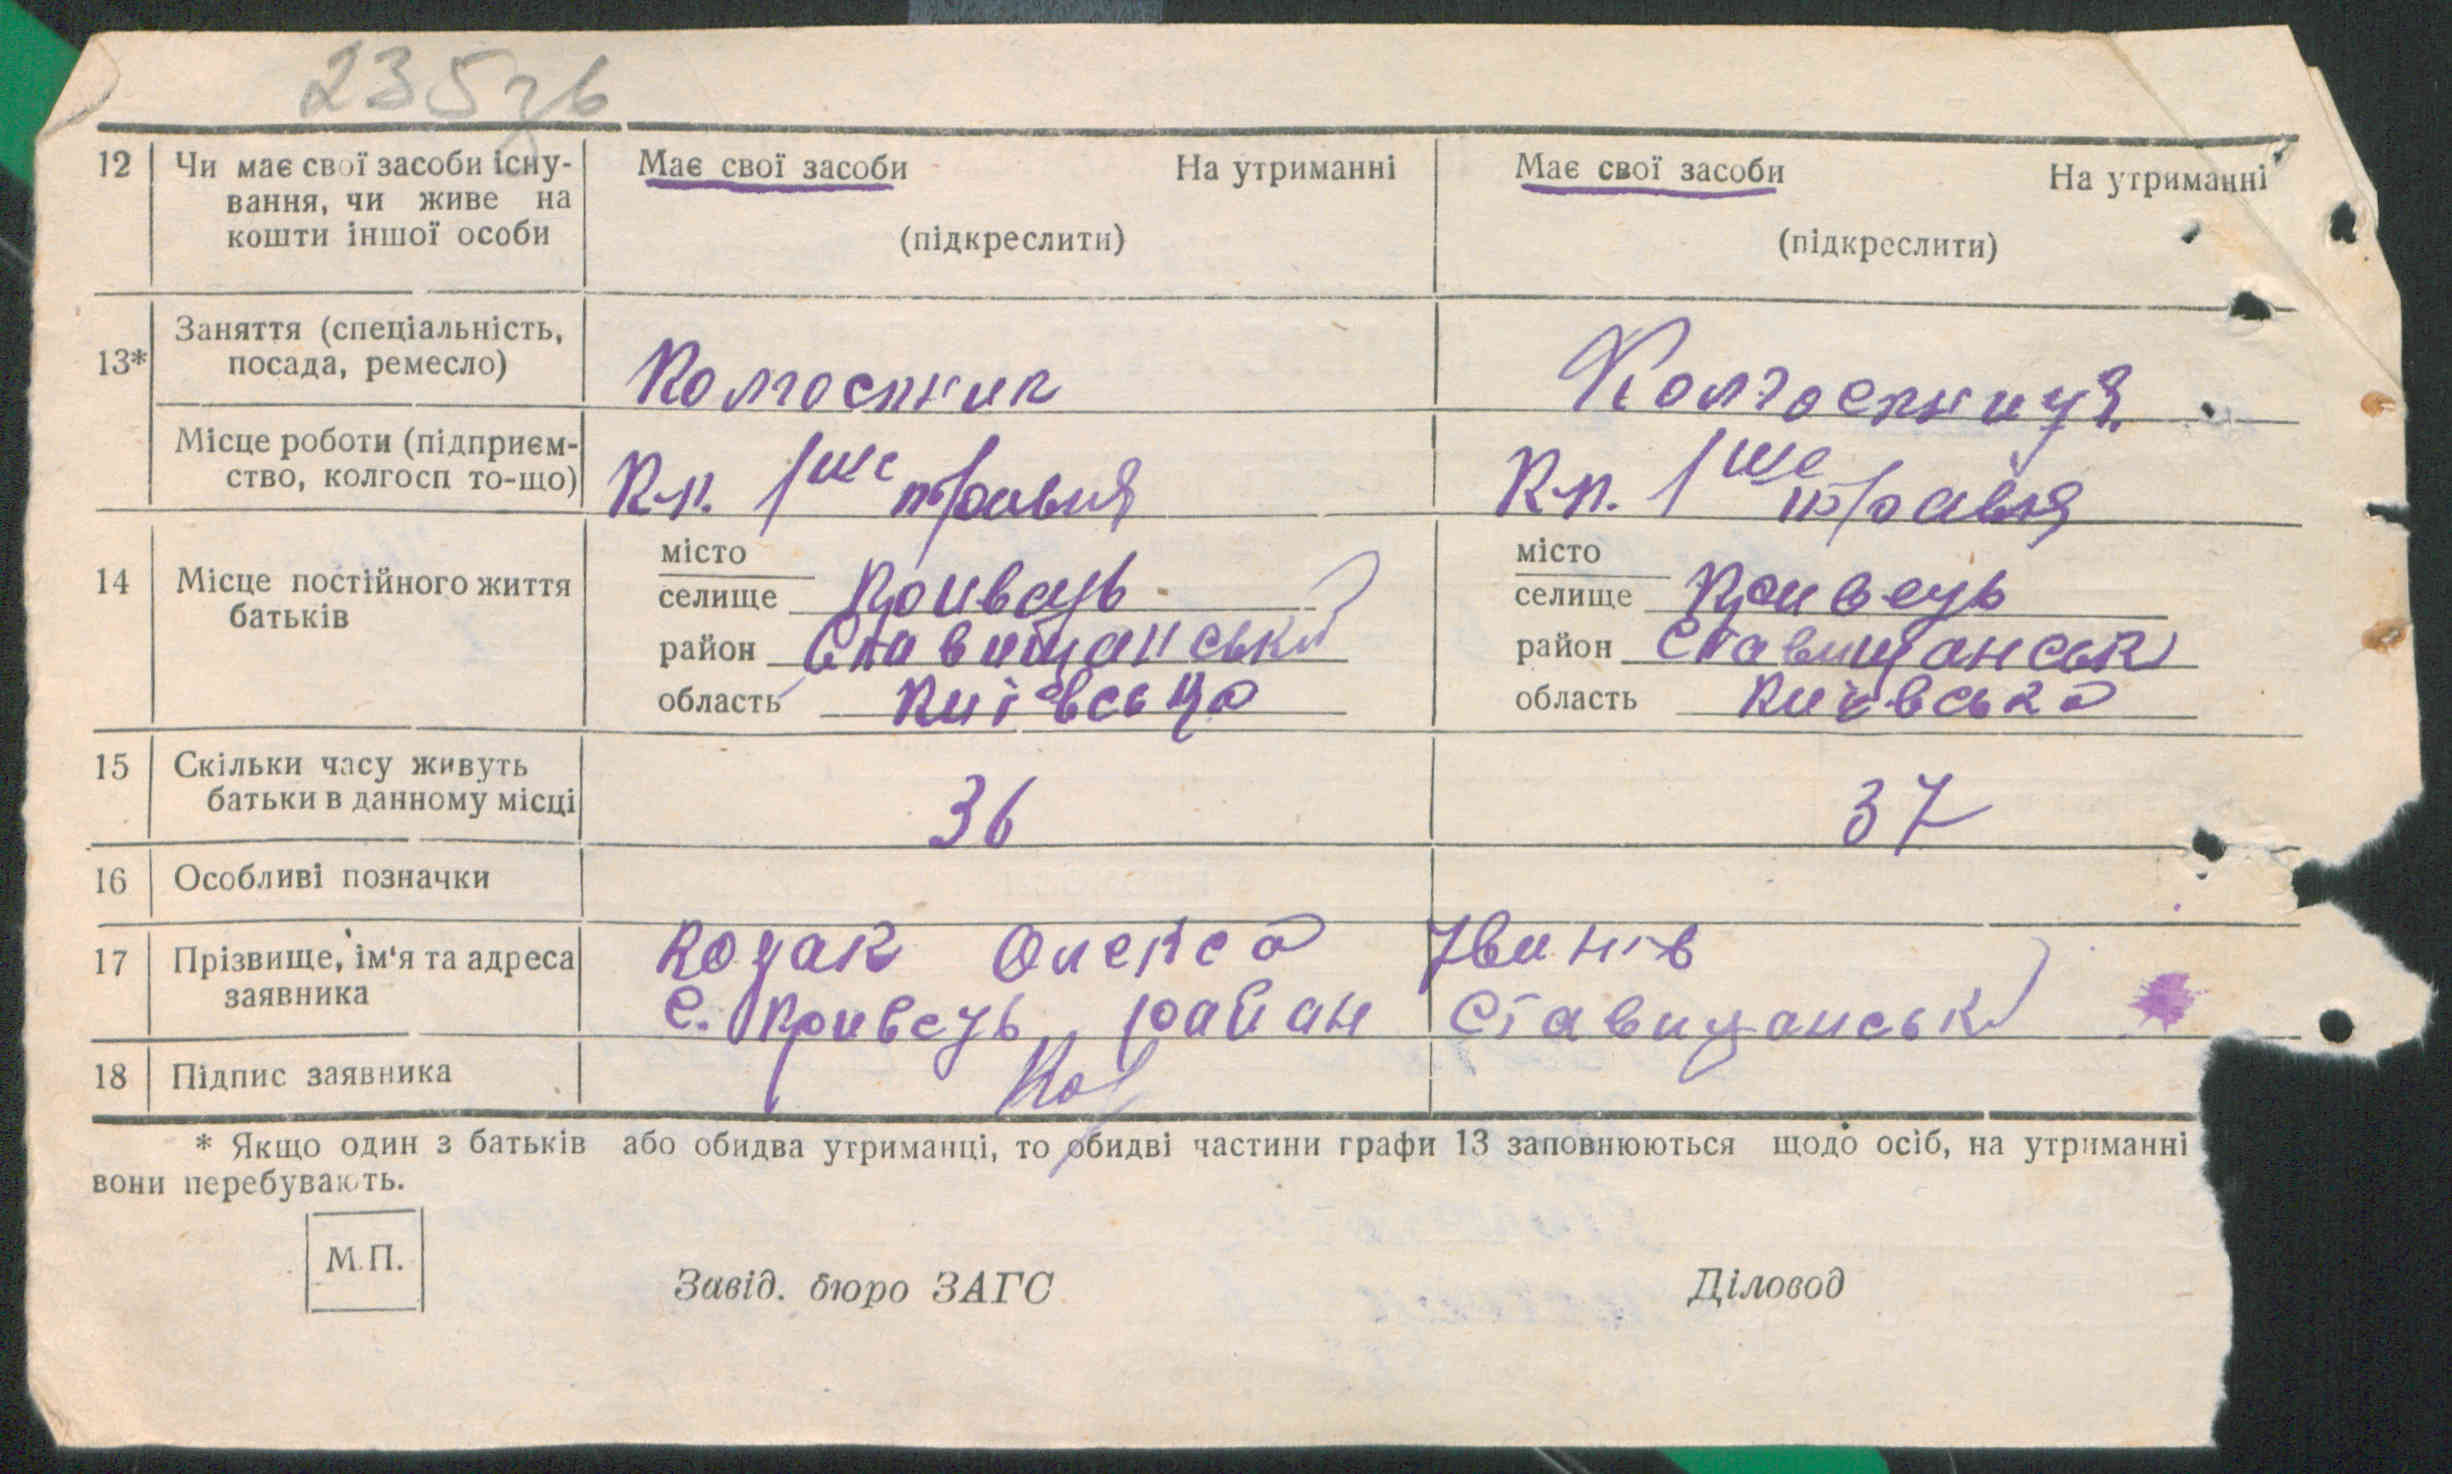 235зв
12 Чи має свої засоби існу- Має свої засоби На утриманні Має свої засоби На утриманні
вання, чи живе на
кошти іншої особи (підкреслити) (підкреслити)
Заняття (спеціальність,
13* посада, ремесло) Колгоспник Колгоспниця
Місце роботи (підприєм-
ство, колгосп то-що) Кл. 1ше травня Кл. 1ше травня
місто місто
14 Місце постійного життя селище Кривець селище Кривець
батьків район Ставищанськи район Ставищанськ
область Київська область Київська
15 Скільки часу живуть
батьки в данному місці 36 37
16 Особливі позначки
17 Прізвище, ім'я та адреса Козак Олекса Іванів
заявника с. Кривець, район Ставищанськ
18 Підпис заявника Коз
* Якщо один з батьків або обидва утриманці, то обидві частини графи 13 заповнюються щодо осіб, на утриманні
вони перебувають.
М.П.
Завід. бюро ЗАГС Діловод